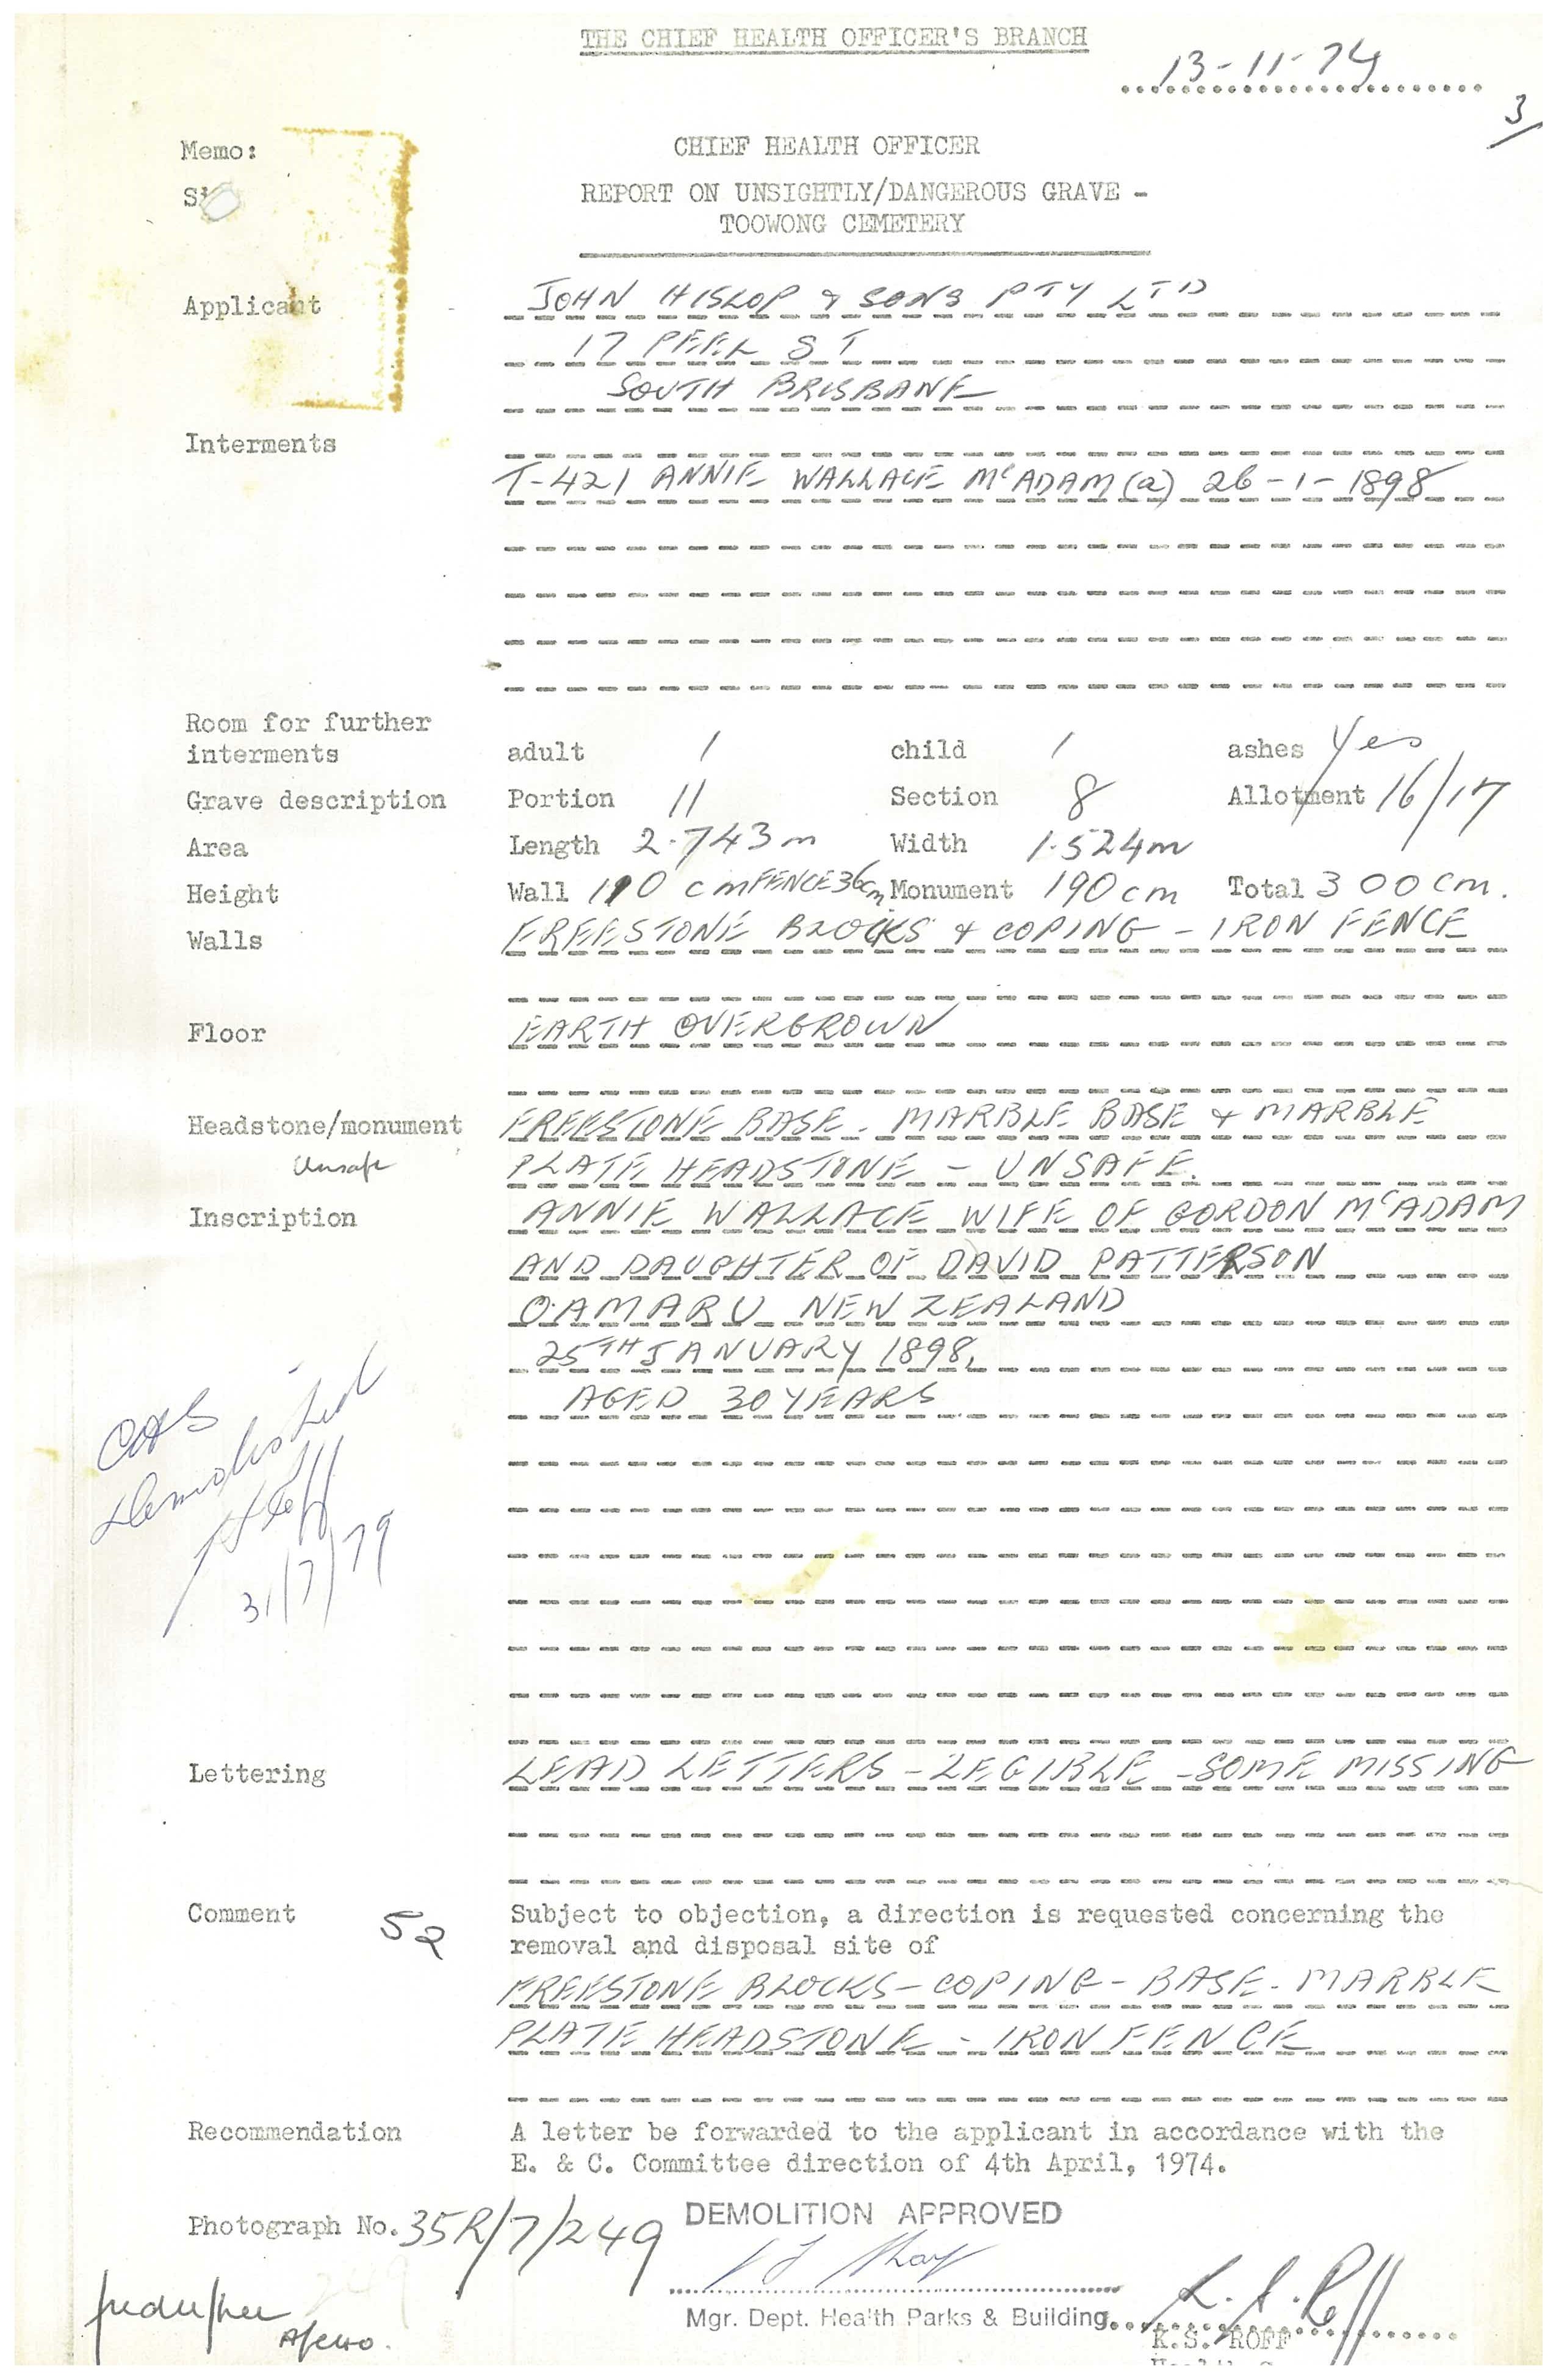 THE CHIEF HEALTH OFFICER'S BRANCH
13-11-74
3/
Memo:
CHIEF HEALTH OFFICER
REPORT ON UNSIGHTLY/DANGEROUS GRAVE -
TOOWONG CEMETERY
Applicant JOHN HISLOP & SONS PTY LTD
17 PEEL ST
SOUTH BRISBANE
Interments
T-421 ANNIE WALLACE McADAM (a) 26-1-1898
Room for further
interments adult 1 child 1 ashes Yes
Grave description Portion 11 Section 8 Allotment 16/17
Area Length 2.743m Width 1.524m
Height Wall 110 cm FENCE 36cm Monument 190cm Total 300cm.
Walls FREESTONE BLOCKS & COPING - IRON FENCE
Floor EARTH OVERGROWN
Headstone/monument FREESTONE BASE - MARBLE BASE & MARBLE
Unsafe PLATE HEADSTONE - UNSAFE.
Inscription ANNIE WALLACE WIFE OF GORDON McADAM
AND DAUGHTER OF DAVID PATTERSON
OAMARU NEW ZEALAND
25TH JANUARY 1898,
AGED 30 YEARS
Demolished
31/7/79
Lettering LEAD LETTERS - LEGIBLE - SOME MISSING
Comment 52 Subject to objection, a direction is requested concerning the
removal and disposal site of
FREESTONE BLOCKS - COPING - BASE - MARBLE
PLATE HEADSTONE - IRON FENCE
Recommendation A letter be forwarded to the applicant in accordance with the
E. & C. Committee direction of 4th April, 1974.
Photograph No. 35R/7/249 DEMOLITION APPROVED
Mgr. Dept. Health Parks & Building
R.S. ROFF